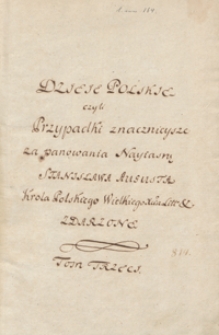 DZIEIE POLSKIE
czyli
Przypadki znacznieysze
za panowania Nayiasn
STANISŁAWA AUGUSTA
Króla Polskiego Wielkiego Xcia Litt &
ZDARZONE
TOM TRZECI.